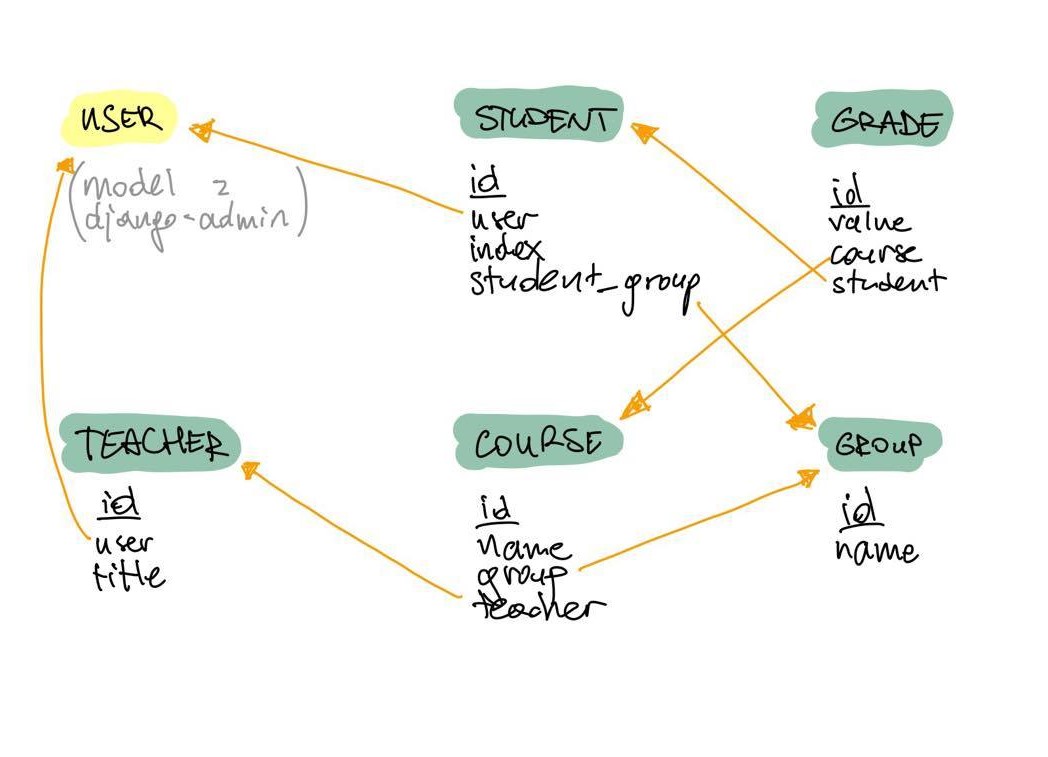 USER
(model z
django-admin)
STUDENT
id
user
index
student_group
GRADE
id
value
course
student
TEACHER
id
user
title
COURSE
id
name
group
teacher
GROUP
id
name